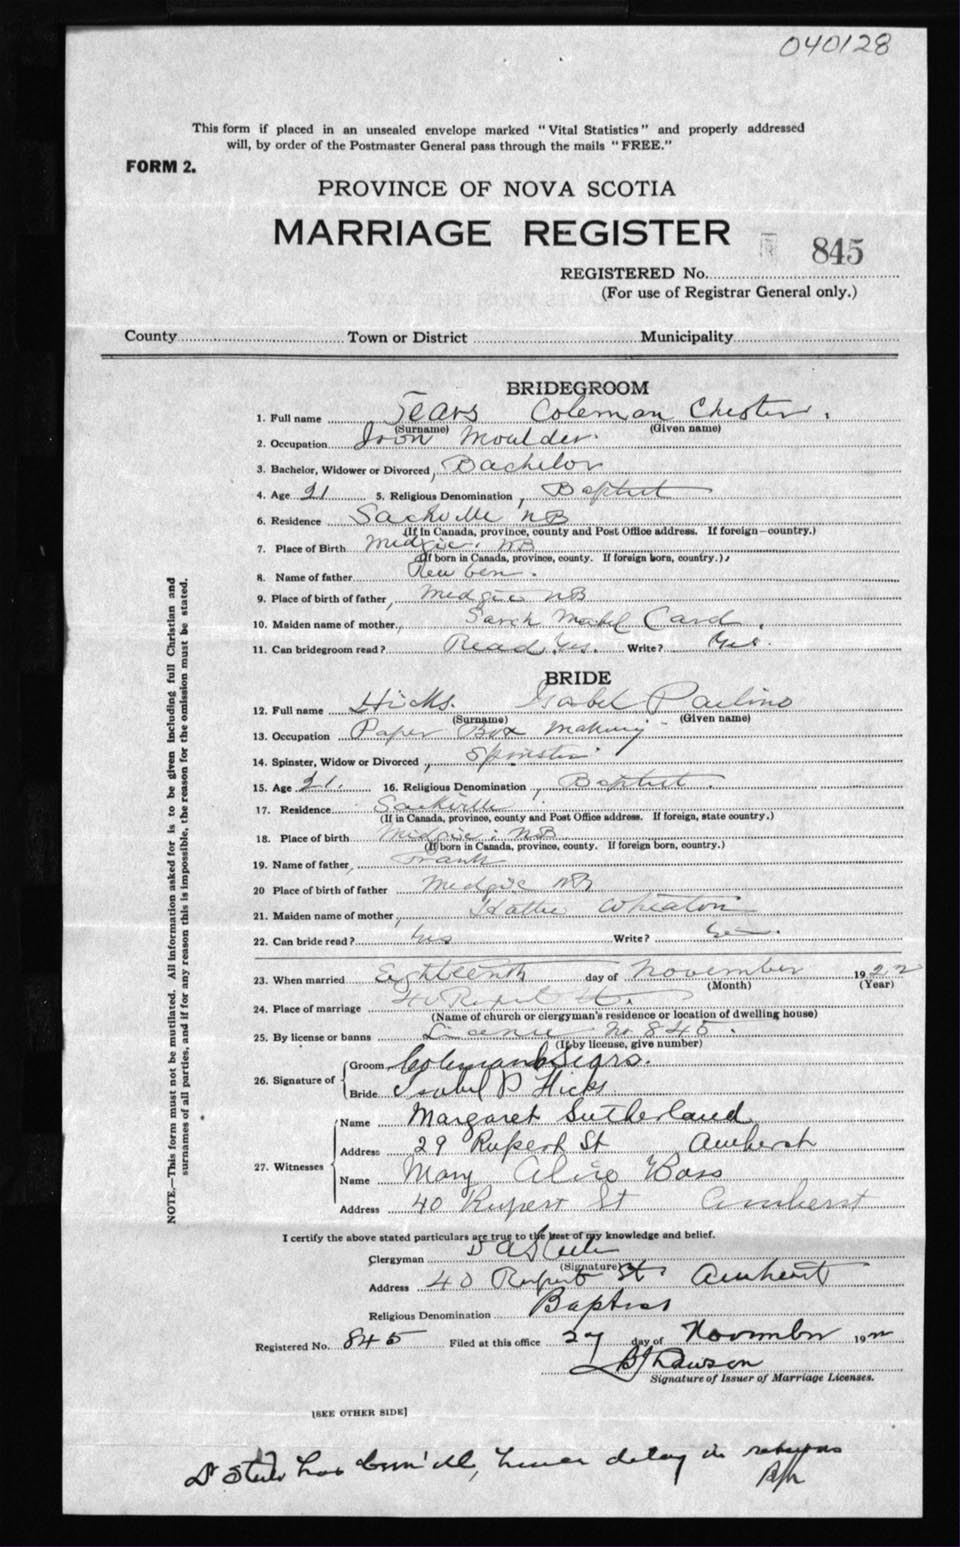 040128
This form if placed in an unsealed envelope marked "Vital Statistics" and properly addressed
will, by order of the Postmaster General pass through the mails "FREE."
FORM 2.
PROVINCE OF NOVA SCOTIA
MARRIAGE REGISTER
845
REGISTERED No.
(For use of Registrar General only.)
County Town or District Municipality
BRIDEGROOM
1. Full name Sears Coleman Chester
(Surname) (Given name)
2. Occupation Iron Moulder
3. Bachelor, Widower or Divorced, Bachelor
4. Age 21 5. Religious Denomination, Baptist
6. Residence Sackville NB
(If in Canada, province, county and Post Office address. If foreign—country.)
7. Place of Birth Midgic NB
(If born in Canada, province, county. If foreign born, country.)
8. Name of father Reuben
9. Place of birth of father, Midgic NB
10. Maiden name of mother, Sarah Mabel Card
11. Can bridegroom read? Read Yes. Write? Yes.
BRIDE
12. Full name Hicks. Isabel Pauline
(Surname) (Given name)
13. Occupation Paper Box Making
14. Spinster, Widow or Divorced, Spinster
15. Age 21. 16. Religious Denomination, Baptist
17. Residence Sackville
(If in Canada, province, county and Post Office address. If foreign, state country.)
18. Place of birth Midgic NB
(If born in Canada, province, county. If foreign born, country.)
19. Name of father, Frank
20 Place of birth of father Midgic NB
21. Maiden name of mother, Hattie Wheaton
22. Can bride read? Yes Write? Yes.
23. When married Eighteenth day of November 1922
(Month) (Year)
24. Place of marriage 40 Rupert St.
(Name of church or clergyman's residence or location of dwelling house)
25. By license or banns License No. 845.
(If by license, give number)
26. Signature of Groom Coleman C Sears.
Bride Isabel P Hicks
27. Witnesses
Name Margaret Sutherland
Address 29 Rupert St Amherst
Name Mary Alice Bass
Address 40 Rupert St Amherst
I certify the above stated particulars are true to the best of my knowledge and belief.
Clergyman D A Steele
(Signature)
Address 40 Rupert St. Amherst
Religious Denomination Baptist
Registered No. 845 Filed at this office 27 day of November 1922
Signature of Issuer of Marriage Licenses.
[SEE OTHER SIDE]
Dr Steele has been ill, hence delay in returns
NOTE.—This form must not be mutilated. All information asked for is to be given including full Christian and
surnames of all parties, and if for any reason this is impossible, the reason for the omission must be stated.